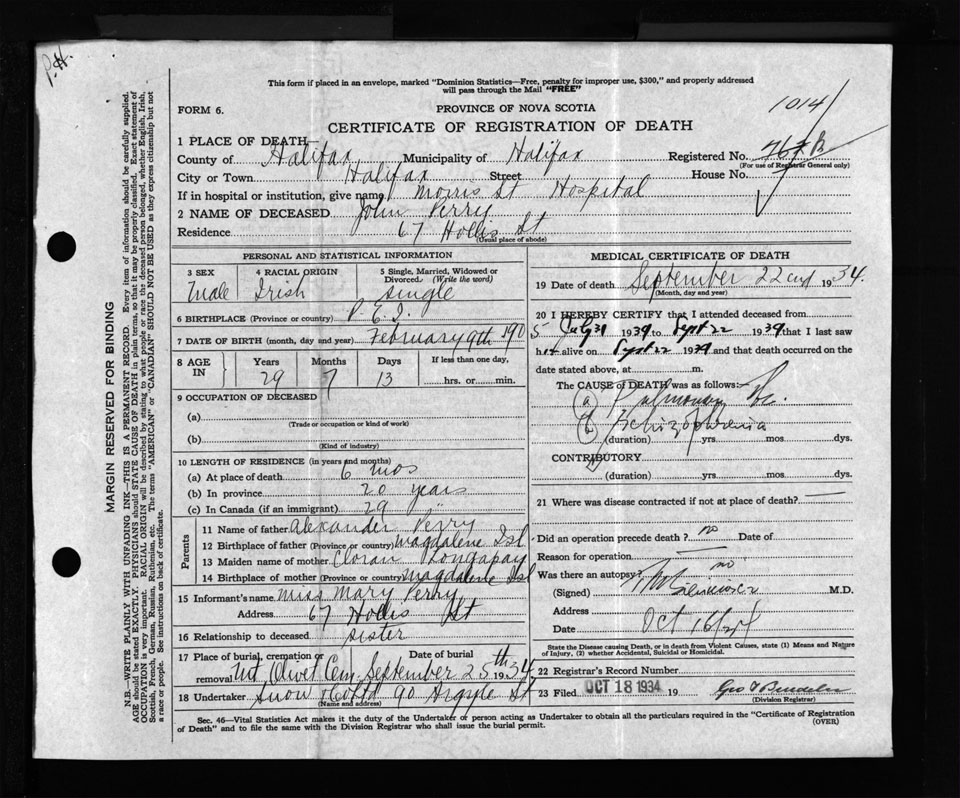 P.H.
This form if placed in an envelope, marked "Dominion Statistics—Free, penalty for improper use, $300," and properly addressed
will pass through the Mail "FREE"
1014
FORM 6.
PROVINCE OF NOVA SCOTIA
CERTIFICATE OF REGISTRATION OF DEATH
1 PLACE OF DEATH
County of Halifax Municipality of Halifax Registered No.
(For use of Registrar General only)
City or Town Halifax Street House No.
If in hospital or institution, give name Morris St Hospital
2 NAME OF DECEASED John Perry
Residence 67 Hollis St
(Usual place of abode)
PERSONAL AND STATISTICAL INFORMATION
3 SEX 4 RACIAL ORIGIN 5 Single, Married, Widowed or
Divorced. (Write the word)
Male Irish single
6 BIRTHPLACE (Province or country) P.E.I.
7 DATE OF BIRTH (month, day and year) February 9th 190
5
8 AGE IN Years Months Days If less than one day,
29 7 13 hrs. or min.
9 OCCUPATION OF DECEASED
(a)
(Trade or occupation or kind of work)
(b)
(Kind of industry)
10 LENGTH OF RESIDENCE (in years and months)
(a) At place of death 6 mos
(b) In province 20 years
(c) In Canada (if an immigrant) 29 "
Parents
11 Name of father Alexander Perry
12 Birthplace of father (Province or country) Magdalene Isl
13 Maiden name of mother
14 Birthplace of mother (Province or country) Magdalene Isl
15 Informant's name Miss Mary Perry
Address 67 Hollis St
16 Relationship to deceased sister
17 Place of burial, cremation or removal Date of burial
Mt. Olivet Cem. September 25th 1934
18 Undertaker Snow & Co Ltd 90 Argyle St
(Name and address)
MEDICAL CERTIFICATE OF DEATH
19 Date of death September 22nd 1934.
(Month, day and year)
20 I HEREBY CERTIFY that I attended deceased from
July 31 1934 to Sept 22 1934 that I last saw
him alive on Sept 22 1934 and that death occurred on the
date stated above, at m.
The CAUSE OF DEATH was as follows:
(a) Pulmonary Tbc.
(b) Schizophrenia
(duration) yrs. mos dys.
CONTRIBUTORY
(duration) yrs. mos. dys.
21 Where was disease contracted if not at place of death?
Did an operation precede death? no Date of
Reason for operation
Was there an autopsy? no
(Signed) M.D.
Address
Date Oct 16/34
State the Disease causing Death, or in death from Violent Causes, state (1) Means and Nature
of Injury, (2) whether Accidental, Suicidal or Homicidal.
22 Registrar's Record Number
23 Filed OCT 18 1934 19 Geo
(Division Registrar)
Sec. 46—Vital Statistics Act makes it the duty of the Undertaker or person acting as Undertaker to obtain all the particulars required in the "Certificate of Registration
of Death" and to file the same with the Division Registrar who shall issue the burial permit.
(OVER)
MARGIN RESERVED FOR BINDING
N.B.—WRITE PLAINLY WITH UNFADING INK—THIS IS A PERMANENT RECORD. Every item of information should be carefully supplied.
AGE should be stated EXACTLY. PHYSICIANS should STATE CAUSE OF DEATH in plain terms, so that it may be properly classified. Exact statement of
OCCUPATION is very important. RACIAL ORIGIN will be described by stating to what people or race the deceased person belonged, whether English, Irish,
Scottish, French, German, Russian, Ruthenian, etc. The terms "AMERICAN" or "CANADIAN" SHOULD NOT BE USED as they express citizenship but not
a race or people. See instructions on back of certificate.